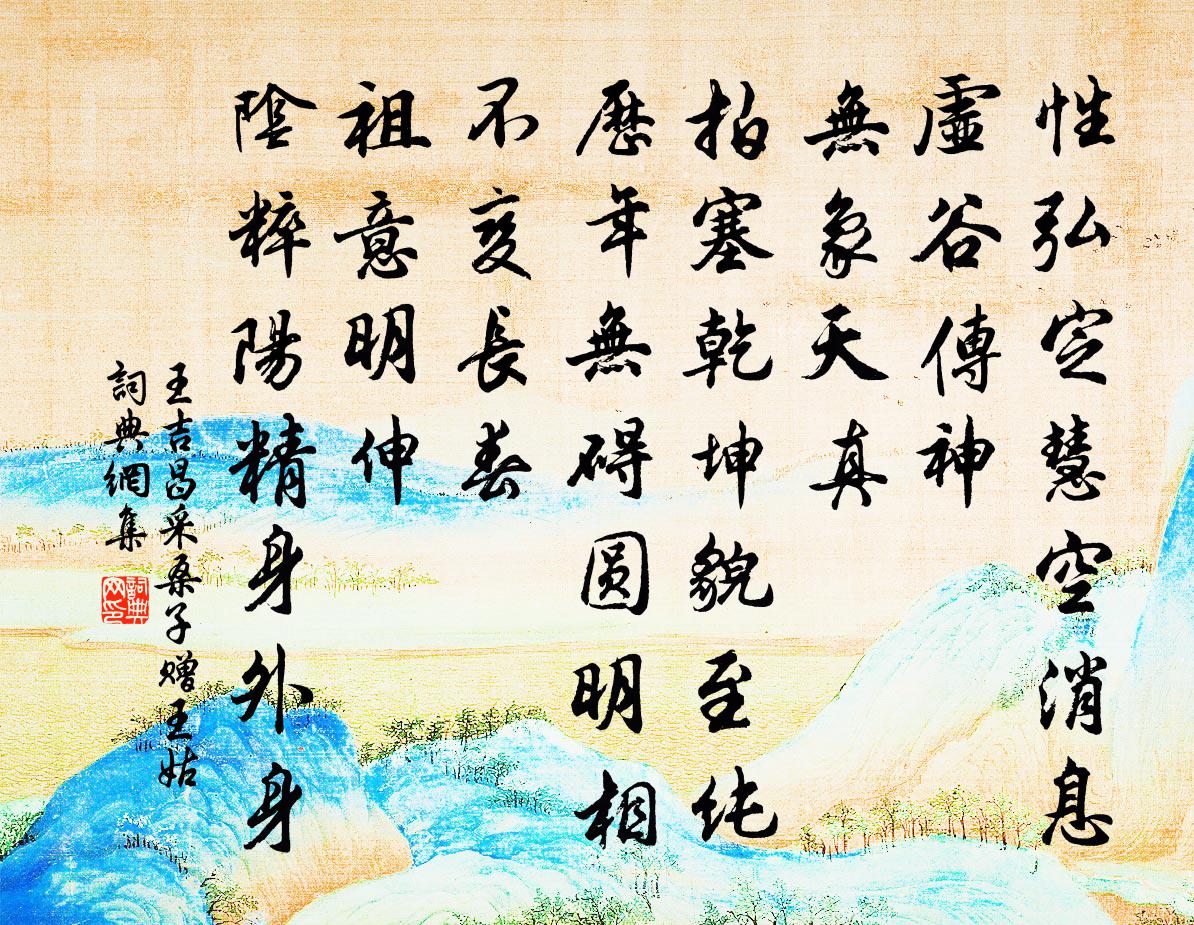 性弘定慧空消息
虛谷傳神
無象天真
拍塞乾坤貌至純
歷年無碍圓明相
不變長春
祖意明伸
陰粹陽精身外身
王吉昌采桑子贈王姑
詞典網集
詞典
网印